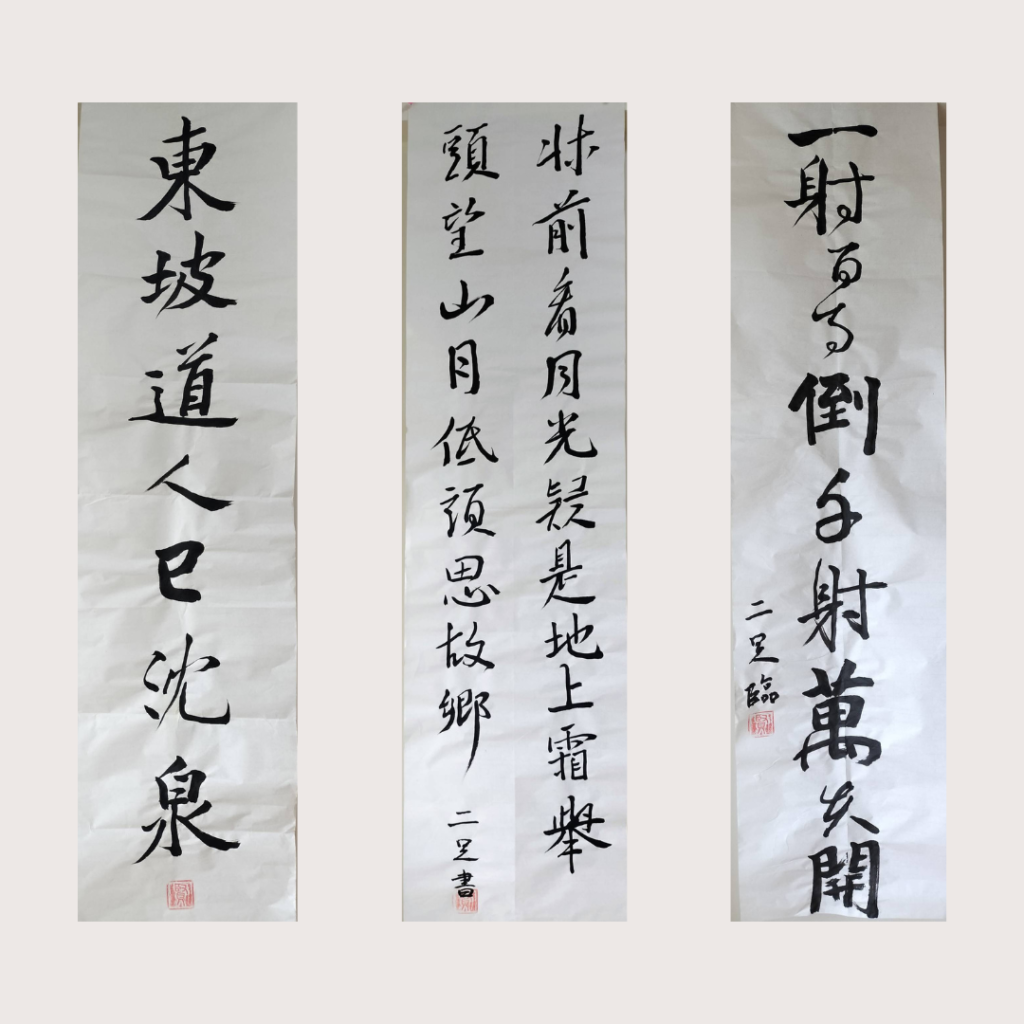 一射百馬倒射萬夫開
二足臨
牀前看月光疑是地上霜舉
頭望山月低頭思故鄉
二足書
東坡道人已沈泉